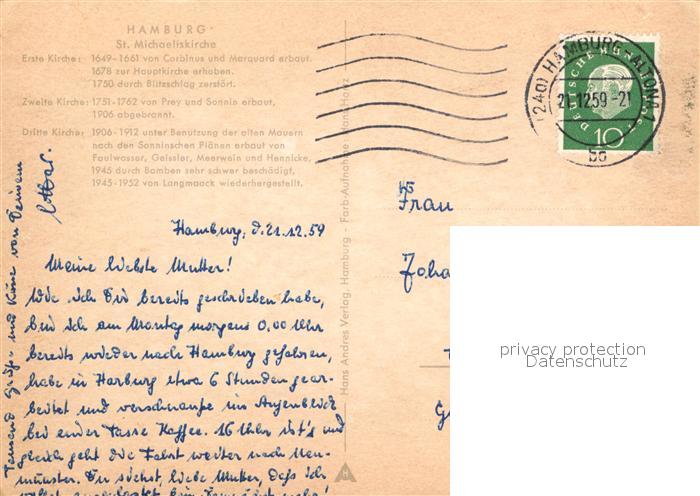 HAMBURG
St. Michaeliskirche
Erste Kirche: 1649-1661 von Corbinus und Marquard erbaut.
1678 zur Hauptkirche erhoben.
1750 durch Blitzschlag zerstört.
Zweite Kirche: 1751-1762 von Prey und Sonnin erbaut,
1906 abgebrannt.
Dritte Kirche: 1906-1912 unter Benutzung der alten Mauern
nach den Sonninschen Plänen erbaut von
Faulwasser, Geissler, Meerwein und Hennicke,
1945 durch Bomben sehr schwer beschädigt,
1945-1952 von Langmaack wiederhergestellt.
Hamburg, d. 21.12.59
Meine liebste Mutter!
Wie ich Dir bereits geschrieben habe,
bin ich am Montag morgens 0.00 Uhr
bereits wieder nach Hamburg gefahren,
habe in Harburg etwa 6 Stunden gear-
beitet und verschnaufe im Augenblick
bei einer Tasse Kaffee. 16 Uhr ist's und
gleich geht die Fahrt weiter nach Neu-
münster. Du siehst, liebe Mutter, daß ich
Tausend Grüße und Küsse von Deinem
Lothar.
Hans Andres Verlag, Hamburg - Farb-Aufnahme: Hans Hartz
(24a) HAMBURG-ALTONA 1
21.12.59-21
bb
DEUTSCHE BUNDESPOST
10
Frau
Joha
privacy protection
Datenschutz